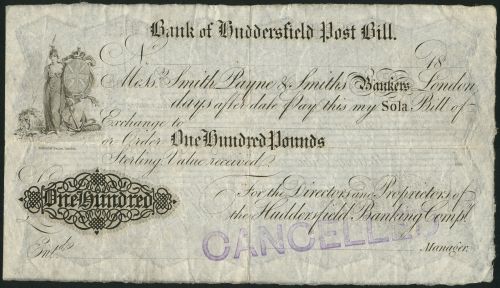 Bank of Huddersfield Post Bill.
No 18
Messrs Smith Payne & Smiths Bankers London
days after date Pay this my Sola Bill of
Exchange to
or Order One Hundred Pounds
Sterling Value received.
For the Directors and Proprietors of
One Hundred
the Huddersfield Banking Compy.
CANCELLED
Entd.
Manager.